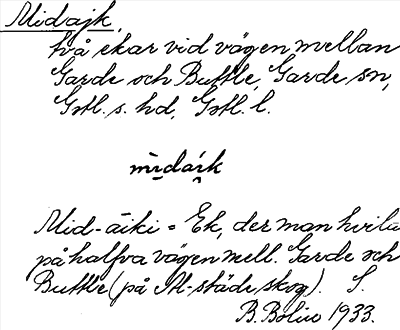 Midajk,
två ekar vid vägen mellan
Garde och Buttle, Garde sn,
Gotl. s. hd, Gotl. l.
mīdāi̯k
Mid-äiki = Ek, der man hvila
på halfva vägen mell. Garde och
Buttle (på Al-städe skog). S.
B. Bolin 1933.